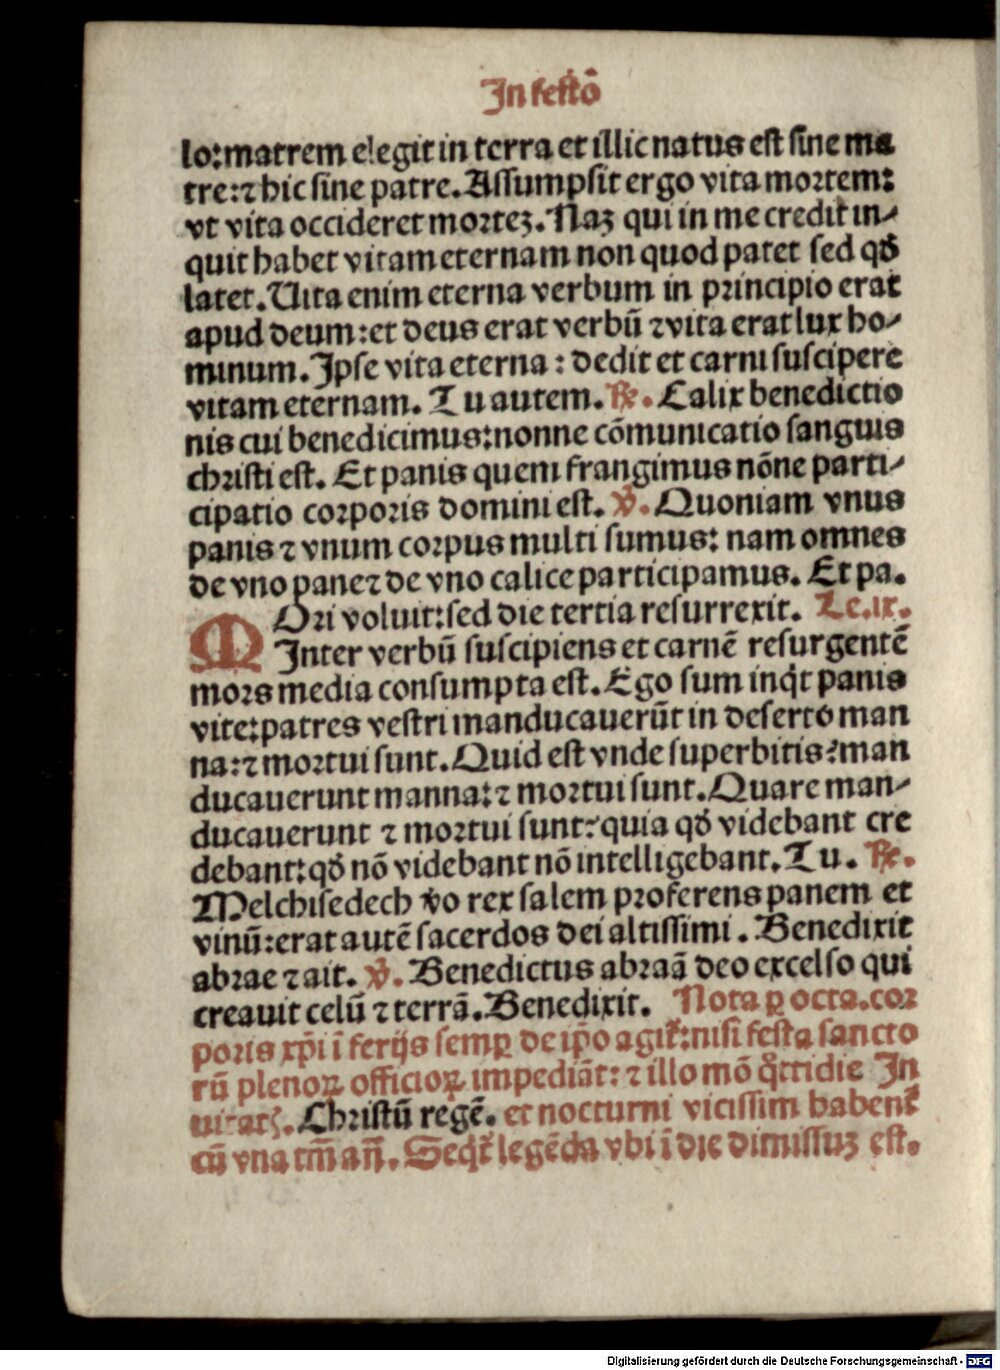 In festō
lo:matrem elegit in terra et illic natus est sine ma
tre:⁊ hic sine patre. Assumpsit ergo vita mortem:
vt vita occideret morteꝫ. Naꝫ qui in me credit in-
quit habet vitam eternam non quod patet sed qđ
latet. Uita enim eterna verbum in principio erat
apud deum:et deus erat verbū ⁊ vita erat lux ho-
minum. Ipse vita eterna : dedit et carni suscipere
vitam eternam. Tu autem. ℞. Calix benedictio
nis cui benedicimus:nonne cōmunicatio sanguis
christi est. Et panis quem frangimus nōne parti-
cipatio corporis domini est. ℣. Quoniam vnus
panis ⁊ vnum corpus multi sumus: nam omnes
de vno pane ⁊ de vno calice participamus. Et pa.
MOri voluit:sed die tertia resurrexit. Le.ix.
Inter verbū suscipiens et carnē resurgentē
mors media consumpta est. Ego sum inqͥt panis
vite:patres vestri manducauerūt in deserto man
na:⁊ mortui sunt. Quid est vnde superbitis?man
ducauerunt manna:⁊ mortui sunt. Quare man-
ducauerunt ⁊ mortui sunt?quia qđ videbant cre
debant:qđ nō videbant nō intelligebant. Tu. ℞.
Melchisedech v̆o rex salem proferens panem et
vinū:erat autē sacerdos dei altissimi. Benedixit
abrae ⁊ ait. ℣. Benedictus abraā deo excelso qui
creauit celū ⁊ terrā. Benedixit. Nota ꝑ octa.cor
poris xp̄i ī ferijs semꝑ de ip̄o agit᷑:nisi festa sancto
rū plenoꝝ officioꝝ impediāt: ⁊ illo mō qͦttidie In
uitatꝭ. Christū regē. et nocturni vicissim habent᷑
cū vna tm̄ an̄. Seqt᷑ legēda vbi ī die dimissuꝫ est.
Digitalisierung gefördert durch die Deutsche Forschungsgemeinschaft - DFG